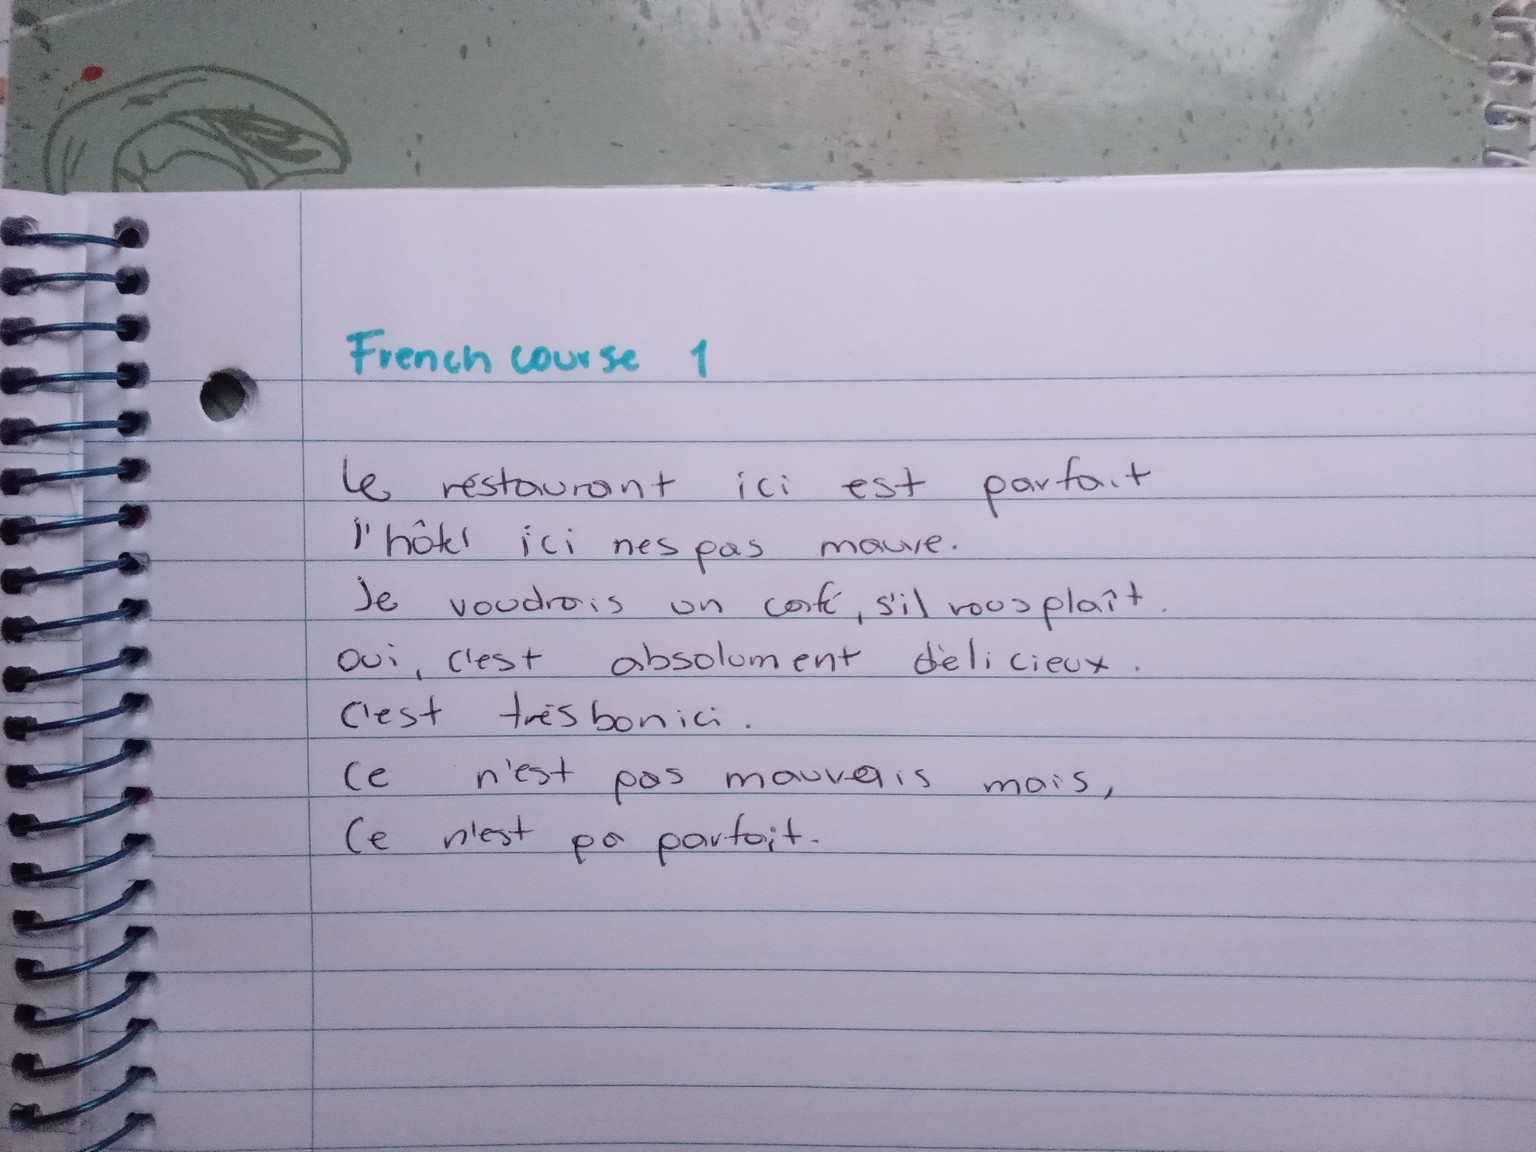 French course 1
Le restaurant ici est parfait
l'hôtel ici nes pas mauve.
Je voudrais un café, s'il vous plaît.
oui, c'est absolument délicieux.
c'est très bon ici.
Ce n'est pas mauvais mais,
Ce n'est pa parfait.